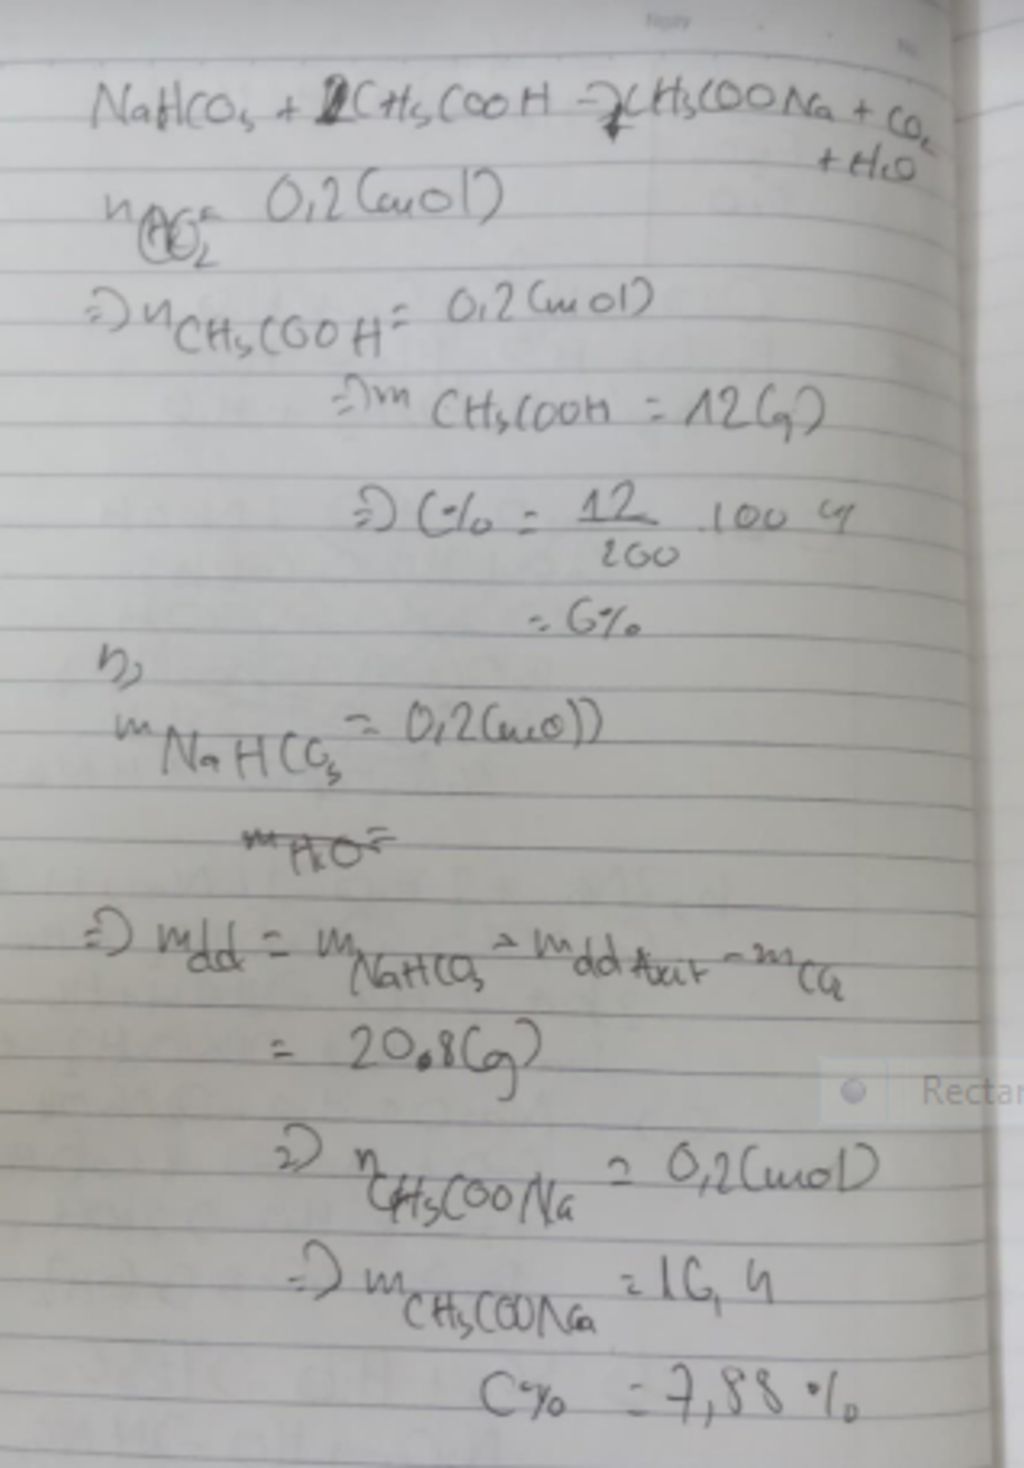 Ngày
No.
NaHCO₃ + 2CH₃COOH → CH₃COONa + CO₂
+ H₂O
n CO₂ = 0,2 (mol)
=> n CH₃COOH = 0,2 (mol)
=> m CH₃COOH = 12 (g)
=> C% = 12/200 .100
= 6%
b,
m NaHCO₃ = 0,2 (mol)
m H₂O =
=> mdd = m NaHCO₃ + mdd Axit - m CO₂
= 208 (g)
=> n CH₃COONa = 0,2 (mol)
=> m CH₃COONa = 16,4
C% = 7,88 %
Rectan